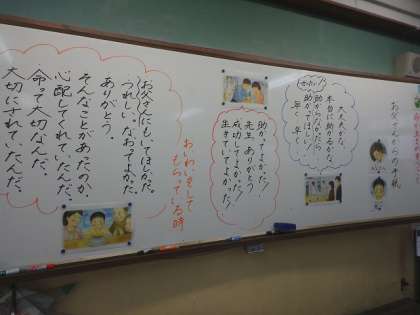 お父さんからの手紙
大丈夫かな。
本当に助かるかな。
助からなかったら
助かってほしい。
助かってよかった！
先生、ありがとう
成功してよかった！
生きていてよかった！
おいわいをして
もらっている時
お父さんにもいてほしかった。
うれしい。なおってよかった
ありがとう。
そんなことがあったのか、
心配してくれていたんだ、
命って大切なんだ、
大切にされていたんだ、